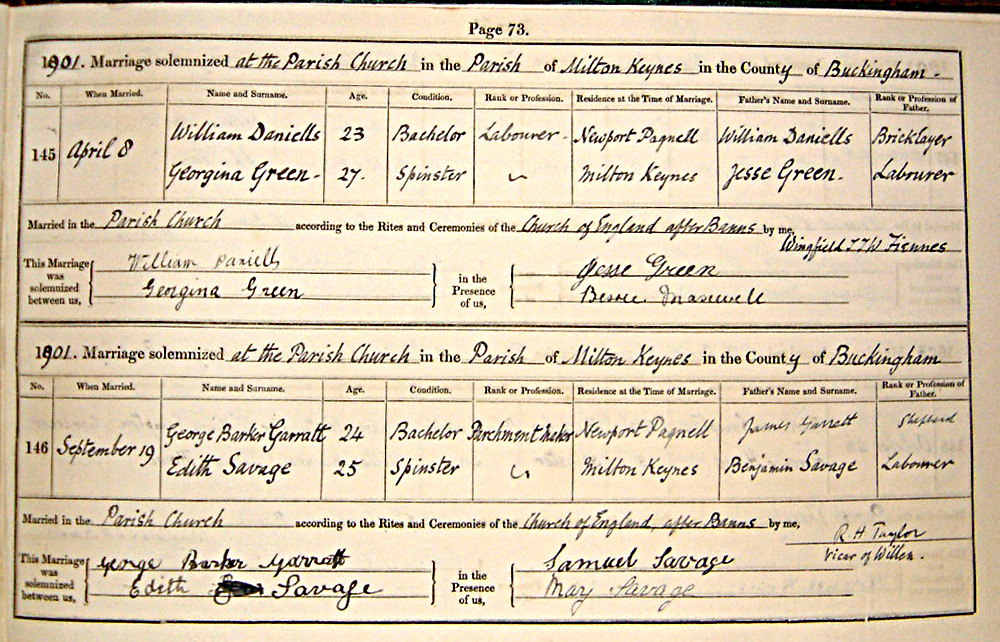 Page 73.
1901. Marriage solemnized at the Parish Church in the Parish of Milton Keynes in the County of Buckingham.
No. When Married. Name and Surname. Age. Condition. Rank or Profession. Residence at the Time of Marriage. Father's Name and Surname. Rank or Profession of Father.
William Daniells 23 Bachelor Labourer - Newport Pagnell William Daniells Bricklayer
145 April 8
Georgina Green - 27. Spinster Milton Keynes Jesse Green. Labourer
Married in the Parish Church according to the Rites and Ceremonies of the Church of England after Banns by me,
Wingfield T T W Fiennes
This Marriage was solemnized between us,
William Daniells
Georgina Green
in the Presence of us,
Jesse Green
Bessie
1901. Marriage solemnized at the Parish Church in the Parish of Milton Keynes in the County of Buckingham
No. When Married. Name and Surname. Age. Condition. Rank or Profession. Residence at the Time of Marriage. Father's Name and Surname. Rank or Profession of Father.
George Barker Garratt 24 Bachelor Parchment Maker Newport Pagnell James Garratt Shepherd
146 September 19
Edith Savage 25 Spinster Milton Keynes Benjamin Savage Labourer
Married in the Parish Church according to the Rites and Ceremonies of the Church of England, after Banns by me,
R H Taylor
Vicar of Willen.
This Marriage was solemnized between us,
George Barker Garratt
Edith Savage
in the Presence of us,
Samuel Savage
May Savage